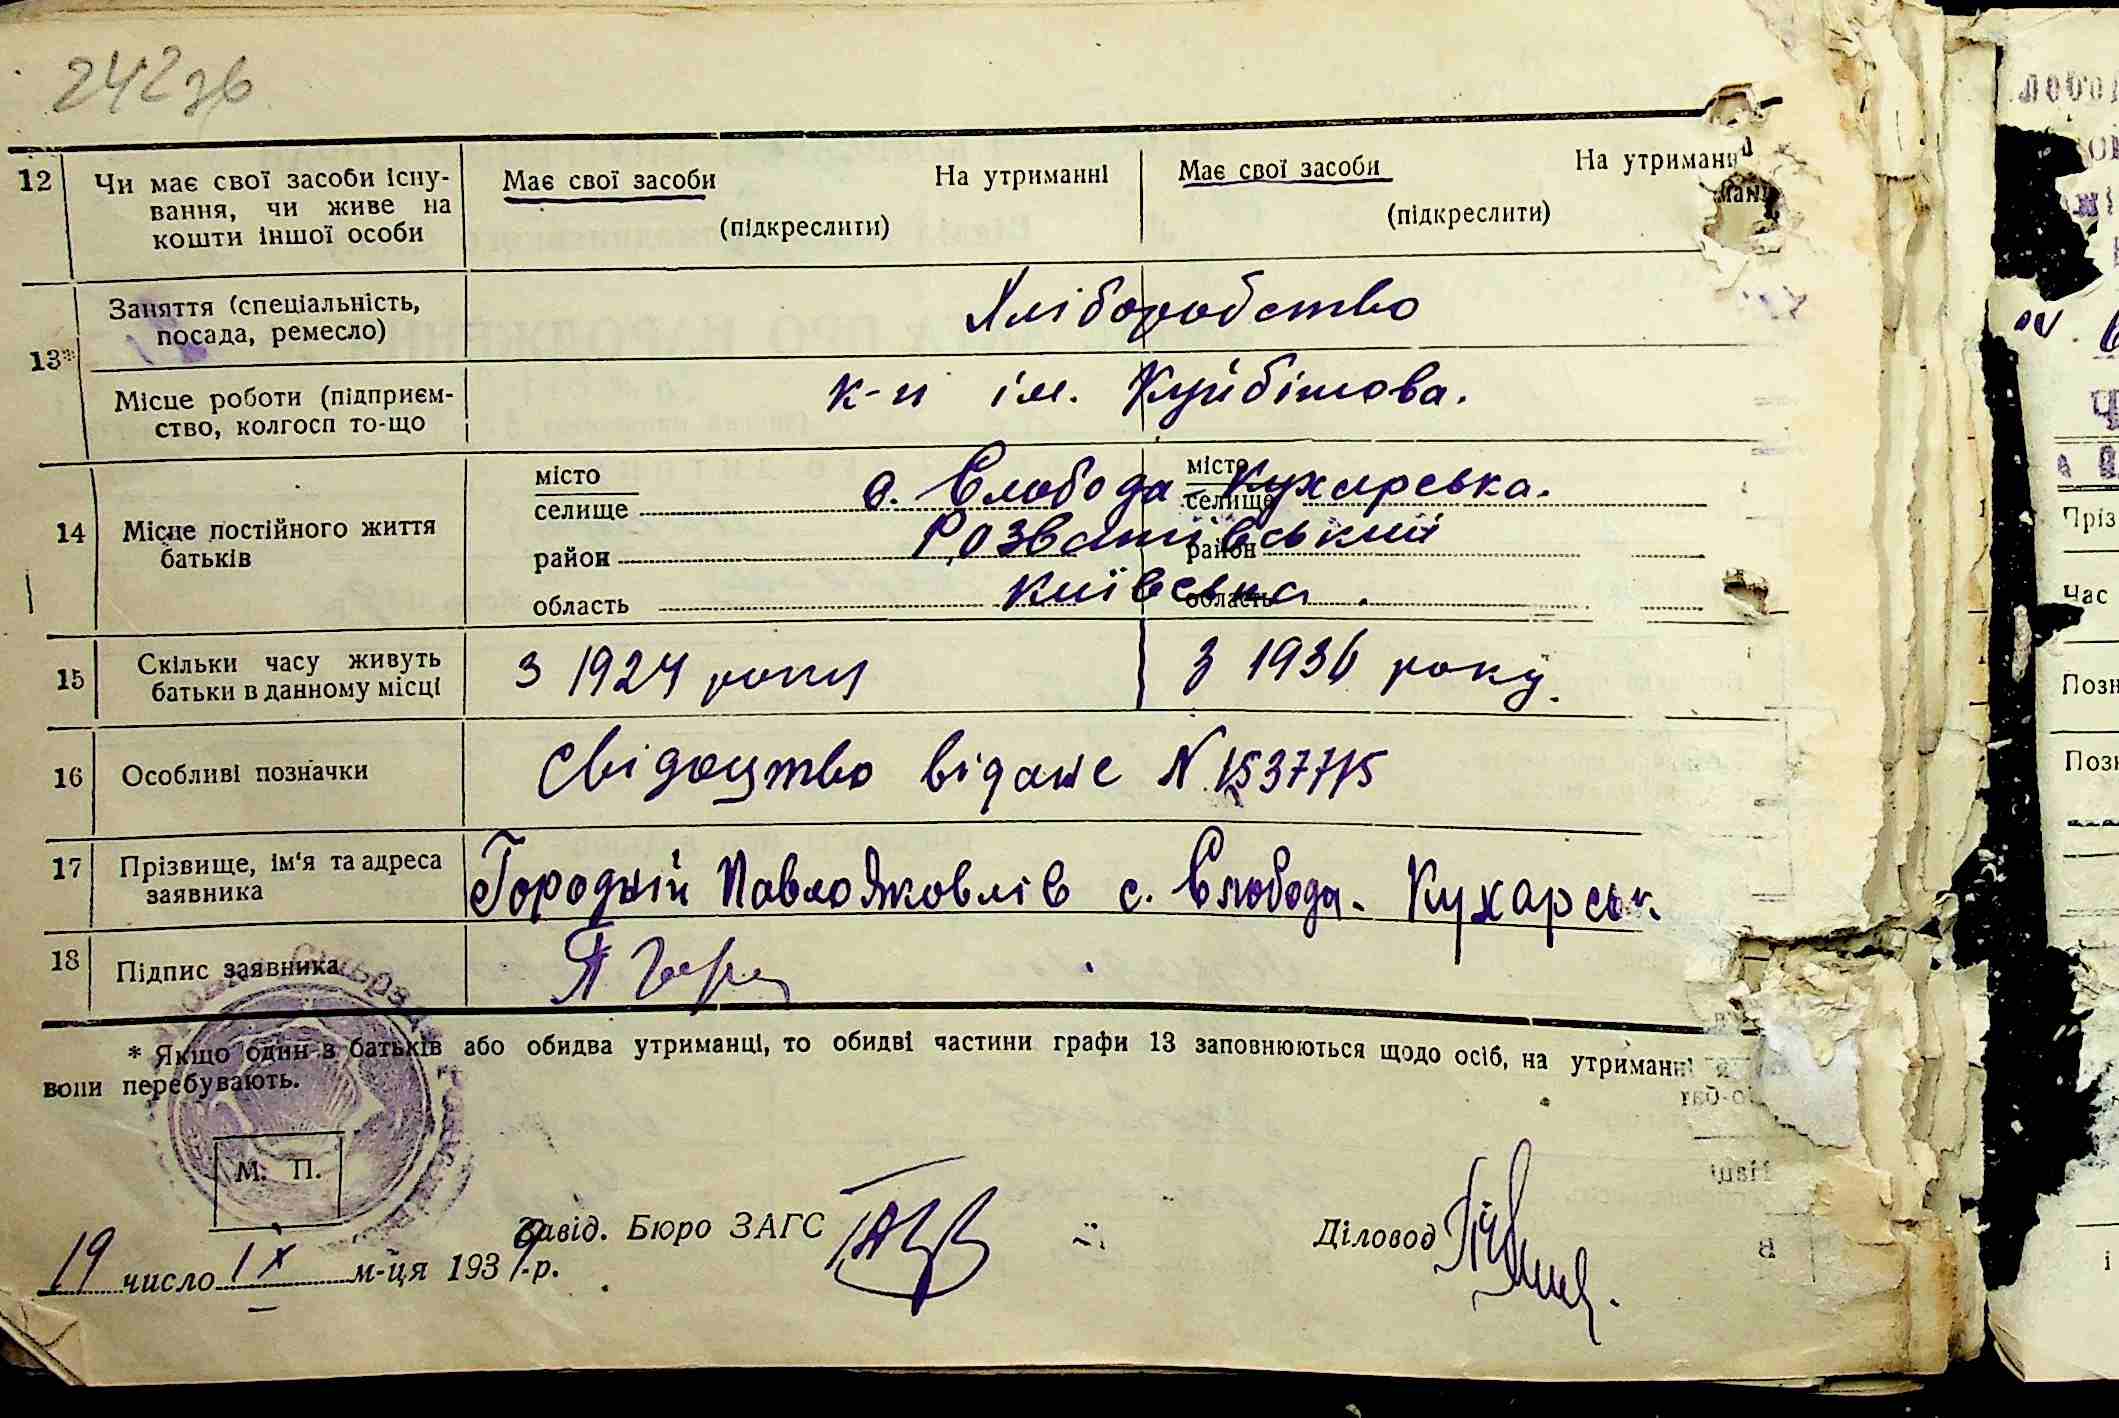 242зв
12
Чи має свої засоби існу-
вання, чи живе на
кошти іншої особи
Має свої засоби На утриманні
(підкреслити)
Має свої засоби На утриманн
(підкреслити)
13*
Заняття (спеціальність,
посада, ремесло)
Хліборобство
Місце роботи (підприєм-
ство, колгосп то-що
к-п ім. Куйбішова.
14
Місце постійного життя
батьків
місто
селище
район
область
місто
селище
район
область
с. Слобода-Кухарська.
Розважівський
Київська.
15
Скільки часу живуть
батьки в данному місці
з 1924 року
з 1936 року.
16
Особливі позначки
Свідоцтво відане N 153771/5
17
Прізвище, ім'я та адреса
заявника
Городній Павло Яковлів с. Слобода-Кухарськ.
18
Підпис заявника
П Горо
* Якщо один з батьків або обидва утриманці, то обидві частини графи 13 заповнюються щодо осіб, на утриманні
вони перебувають.
М. П.
Завід. Бюро ЗАГС
Діловод
19 число ІХ м-ця 1939 р.
Пріз
Час
Позн
Позн